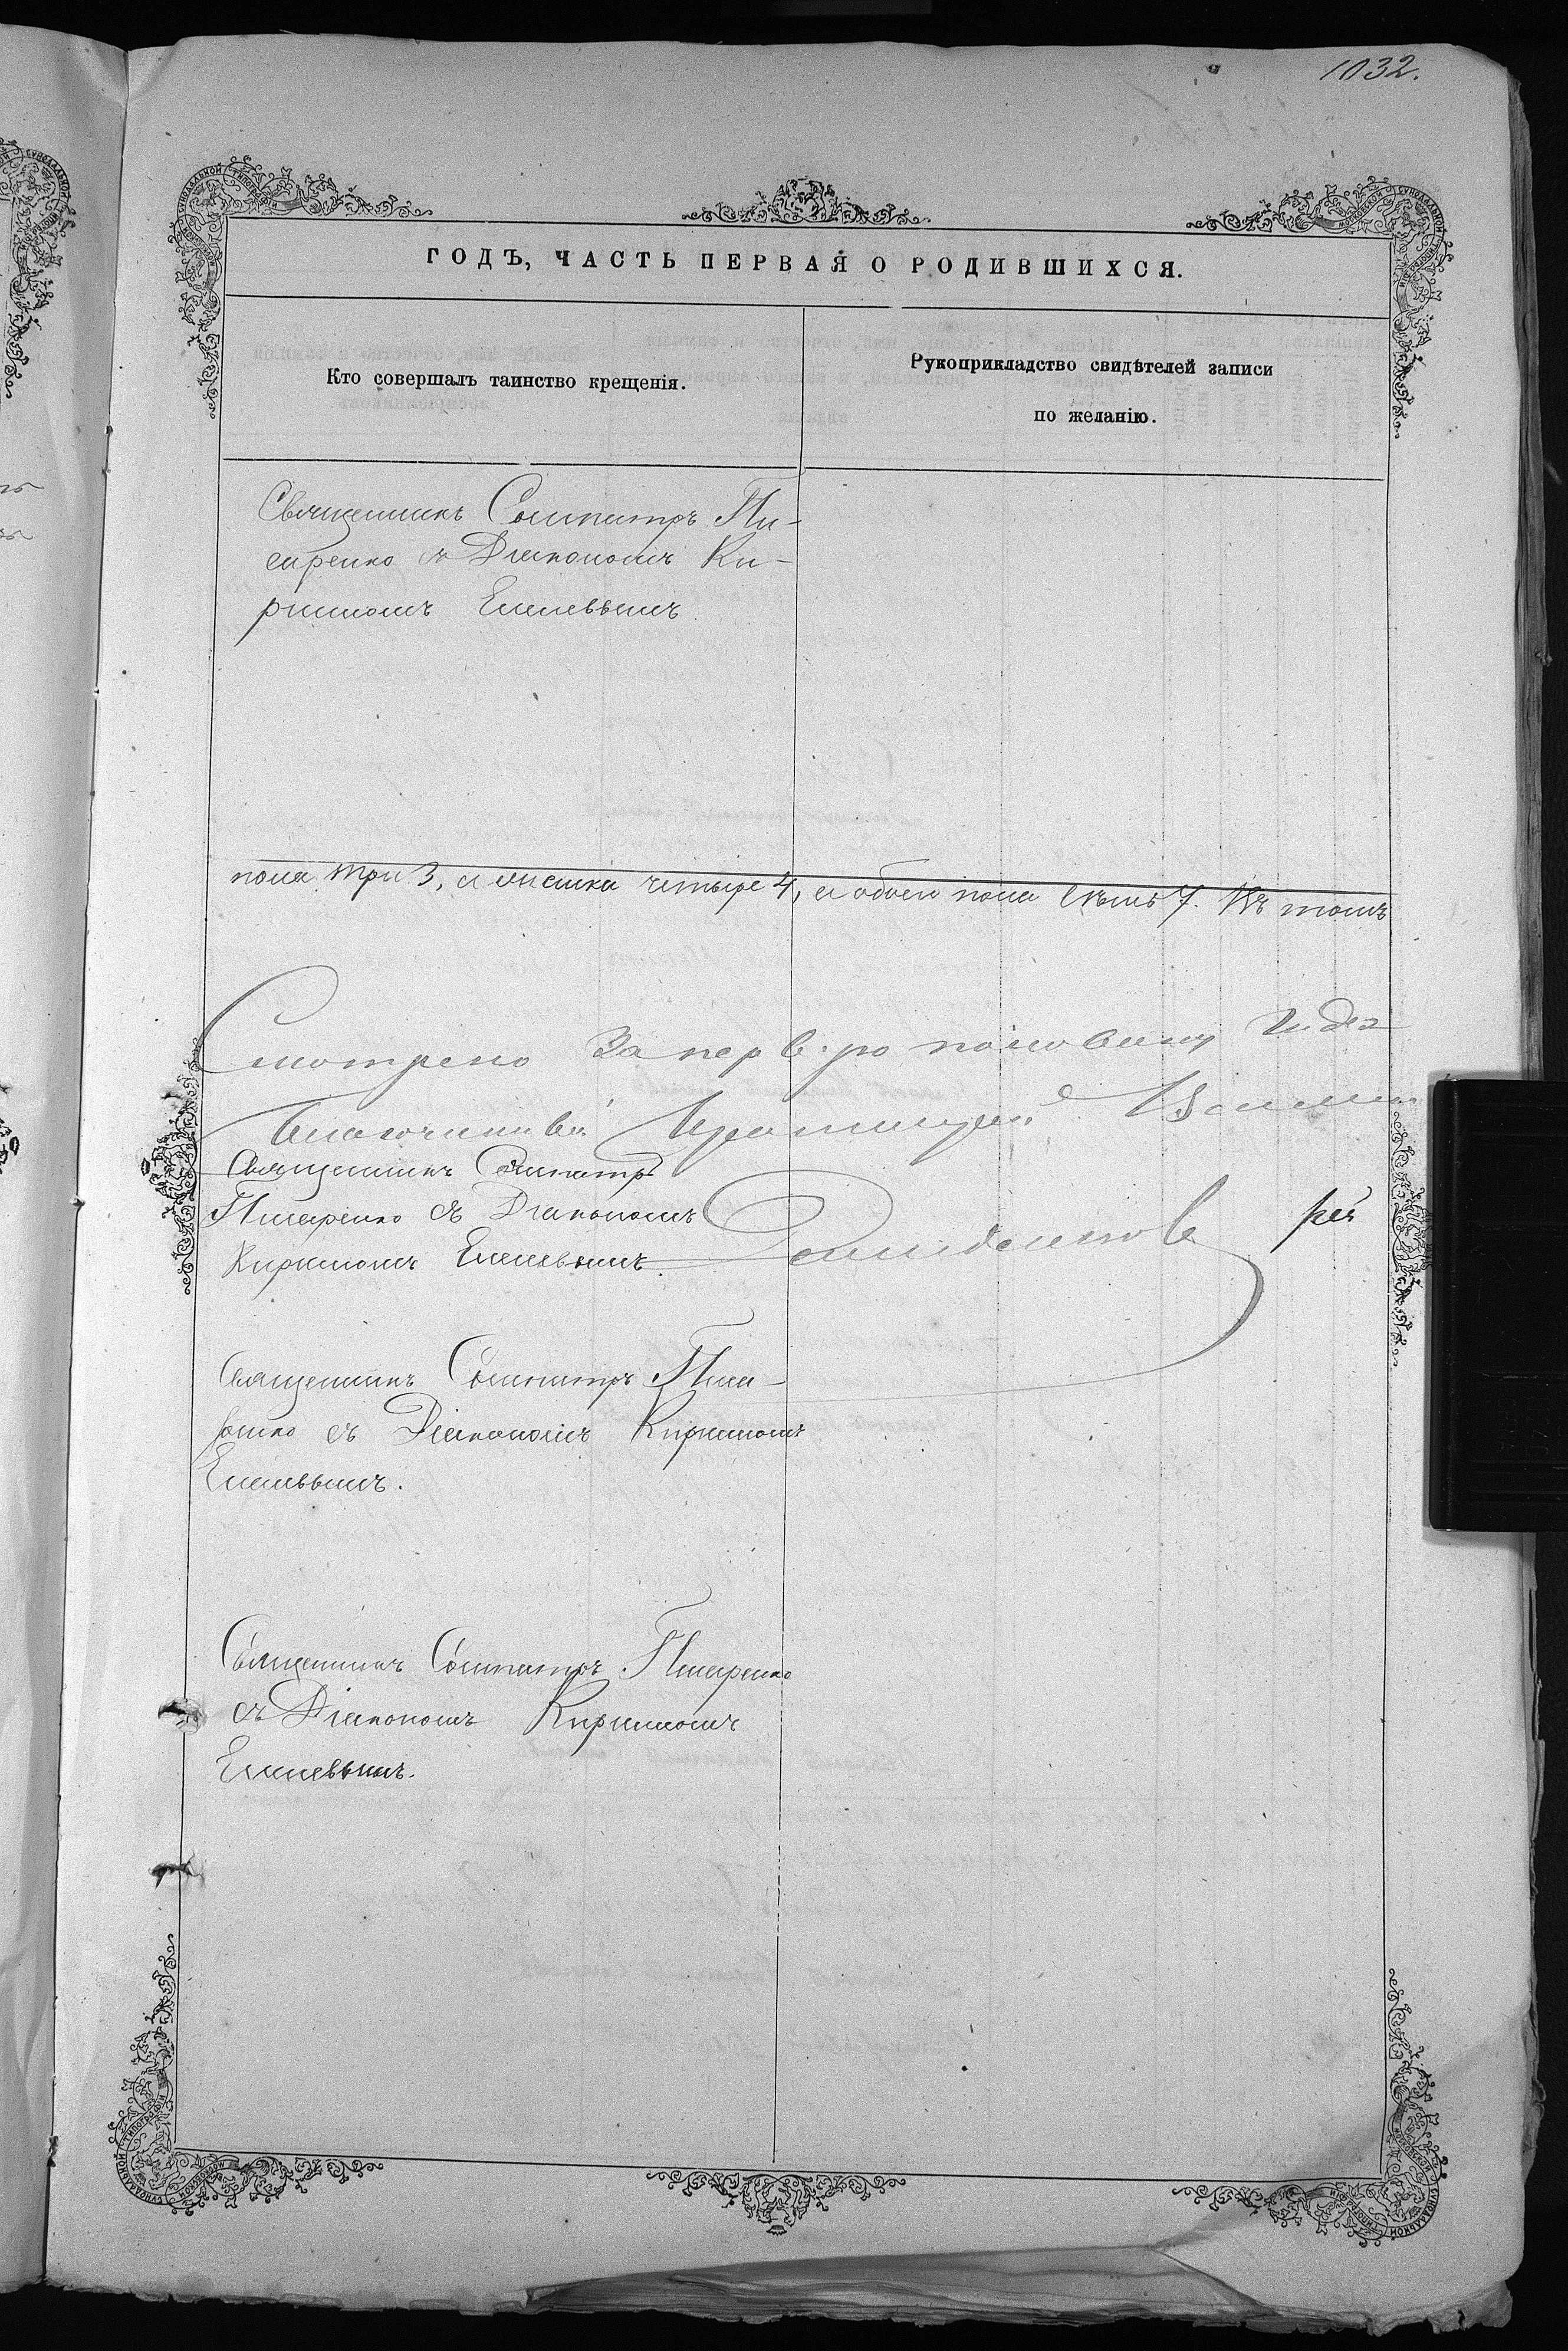 1032.
ГОДЪ, ЧАСТЬ ПЕРВАЯ О РОДИВШИХСЯ.
Кто совершалъ таинство крещенія.
Рукоприкладство свидѣтелей записи
по желанію.
Священникъ Сосипатръ Пи-
саренко съ Діакономъ Ки-
рилломъ
пола три 3, а женска четыре 4, а обоего пола семь 7. Въ томъ
Смотрено за первую половину года
Благочинный
Священникъ Сосипатръ
Писаренко съ Діакономъ
Кирилломъ
Священникъ Сосипатръ Писа-
ренко съ Діакономъ Кирилломъ
Священникъ Сосипатръ Писаренко
съ Діакономъ Кирилломъ